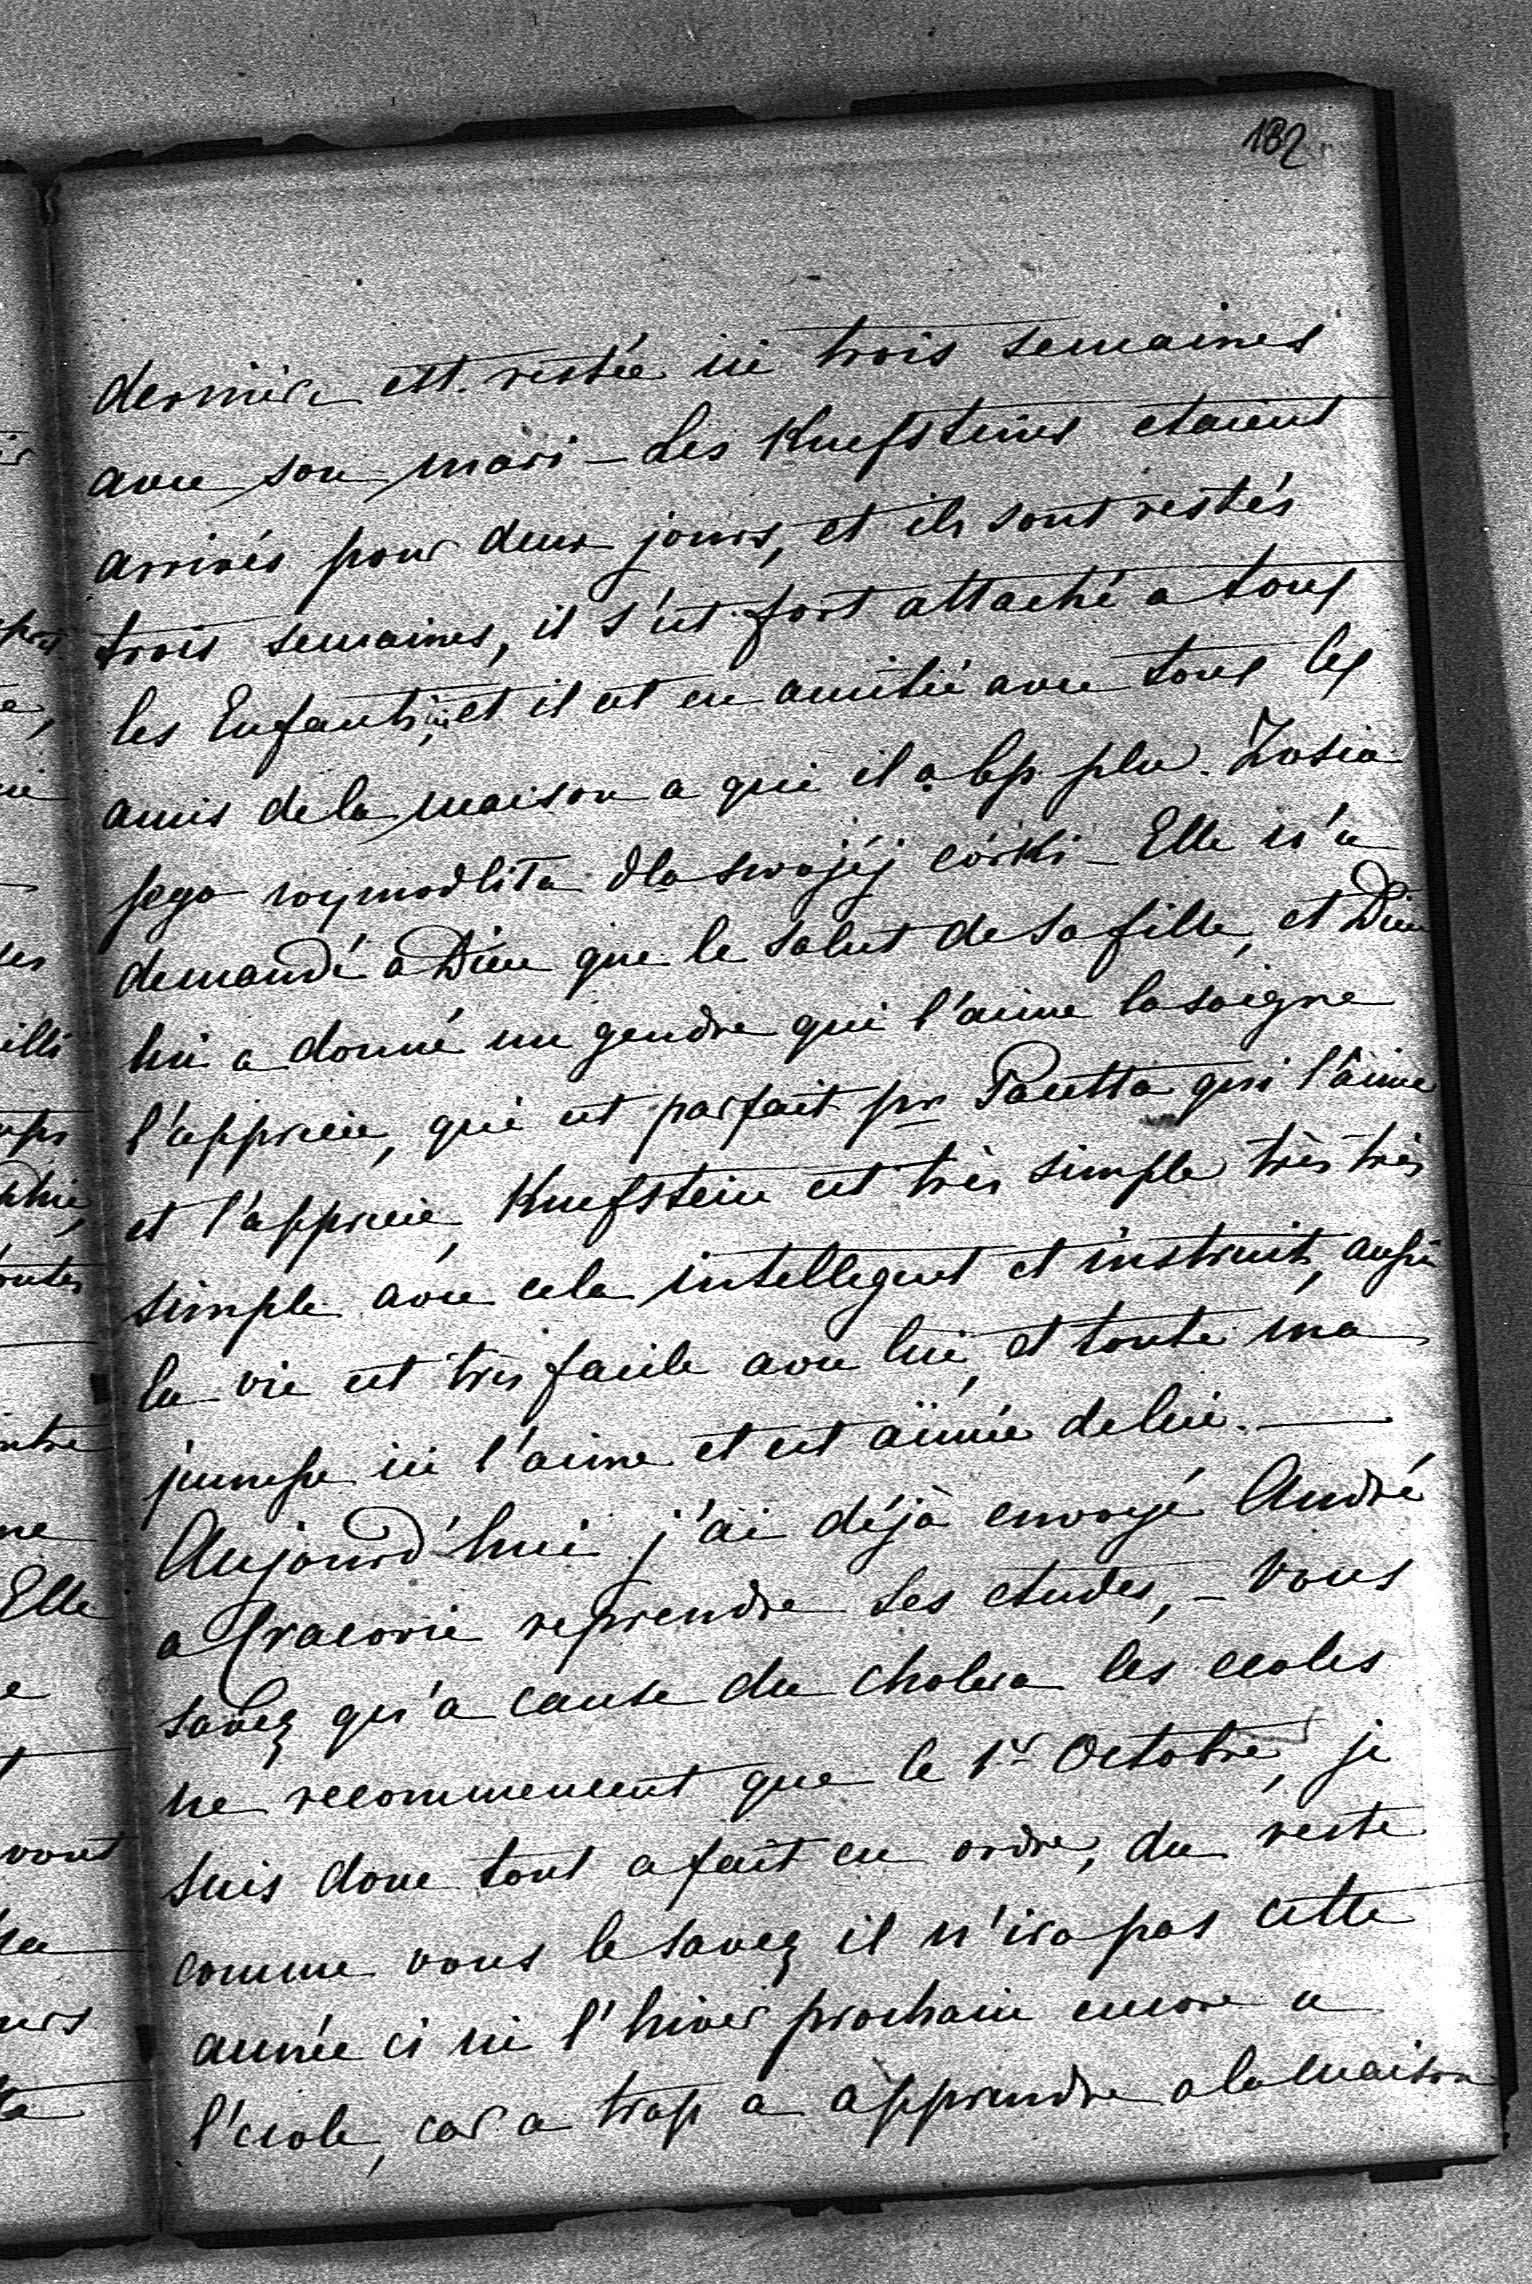 182
dernière est restée ici trois semaines
avec son mari – Les Kuefsteins etaient
arrivés pour deux jours, et ils sont restés
trois semaines, il s'est fort attaché a tous
les Enfants, et il est en amitié avec tous les
amis de la maison a qui il a bp plu. Zosia
jego wymodliła dla swojéj córki – Elle n'a
demandé a Dieu que le salut de sa fille, et Dieu
lui a donné un gendre qui l'aime la soigne
l'apprecie, qui est parfait pr Paletta qui l'aime
et l'apprecie, Kuefstein est très simple très très
simple avec cela intellegent et instruit, aussi
la vie est très facile avec lui, et toute ma
jeunesse ici l'aime et est aimée de lui. —
Aujourd'hui j'ai déjà envoyé André
a Cracovie reprendre ses etudes, – vous
savez qu'a cause du cholera les ecoles
ne recommencent que le 1r Octobre, je
suis donc tout a fait en ordre, du reste
comme vous le savez il n'ira pas cette
année ci ni l'hiver prochain encore a
l'ecole, car a trop a apprendre a la maison